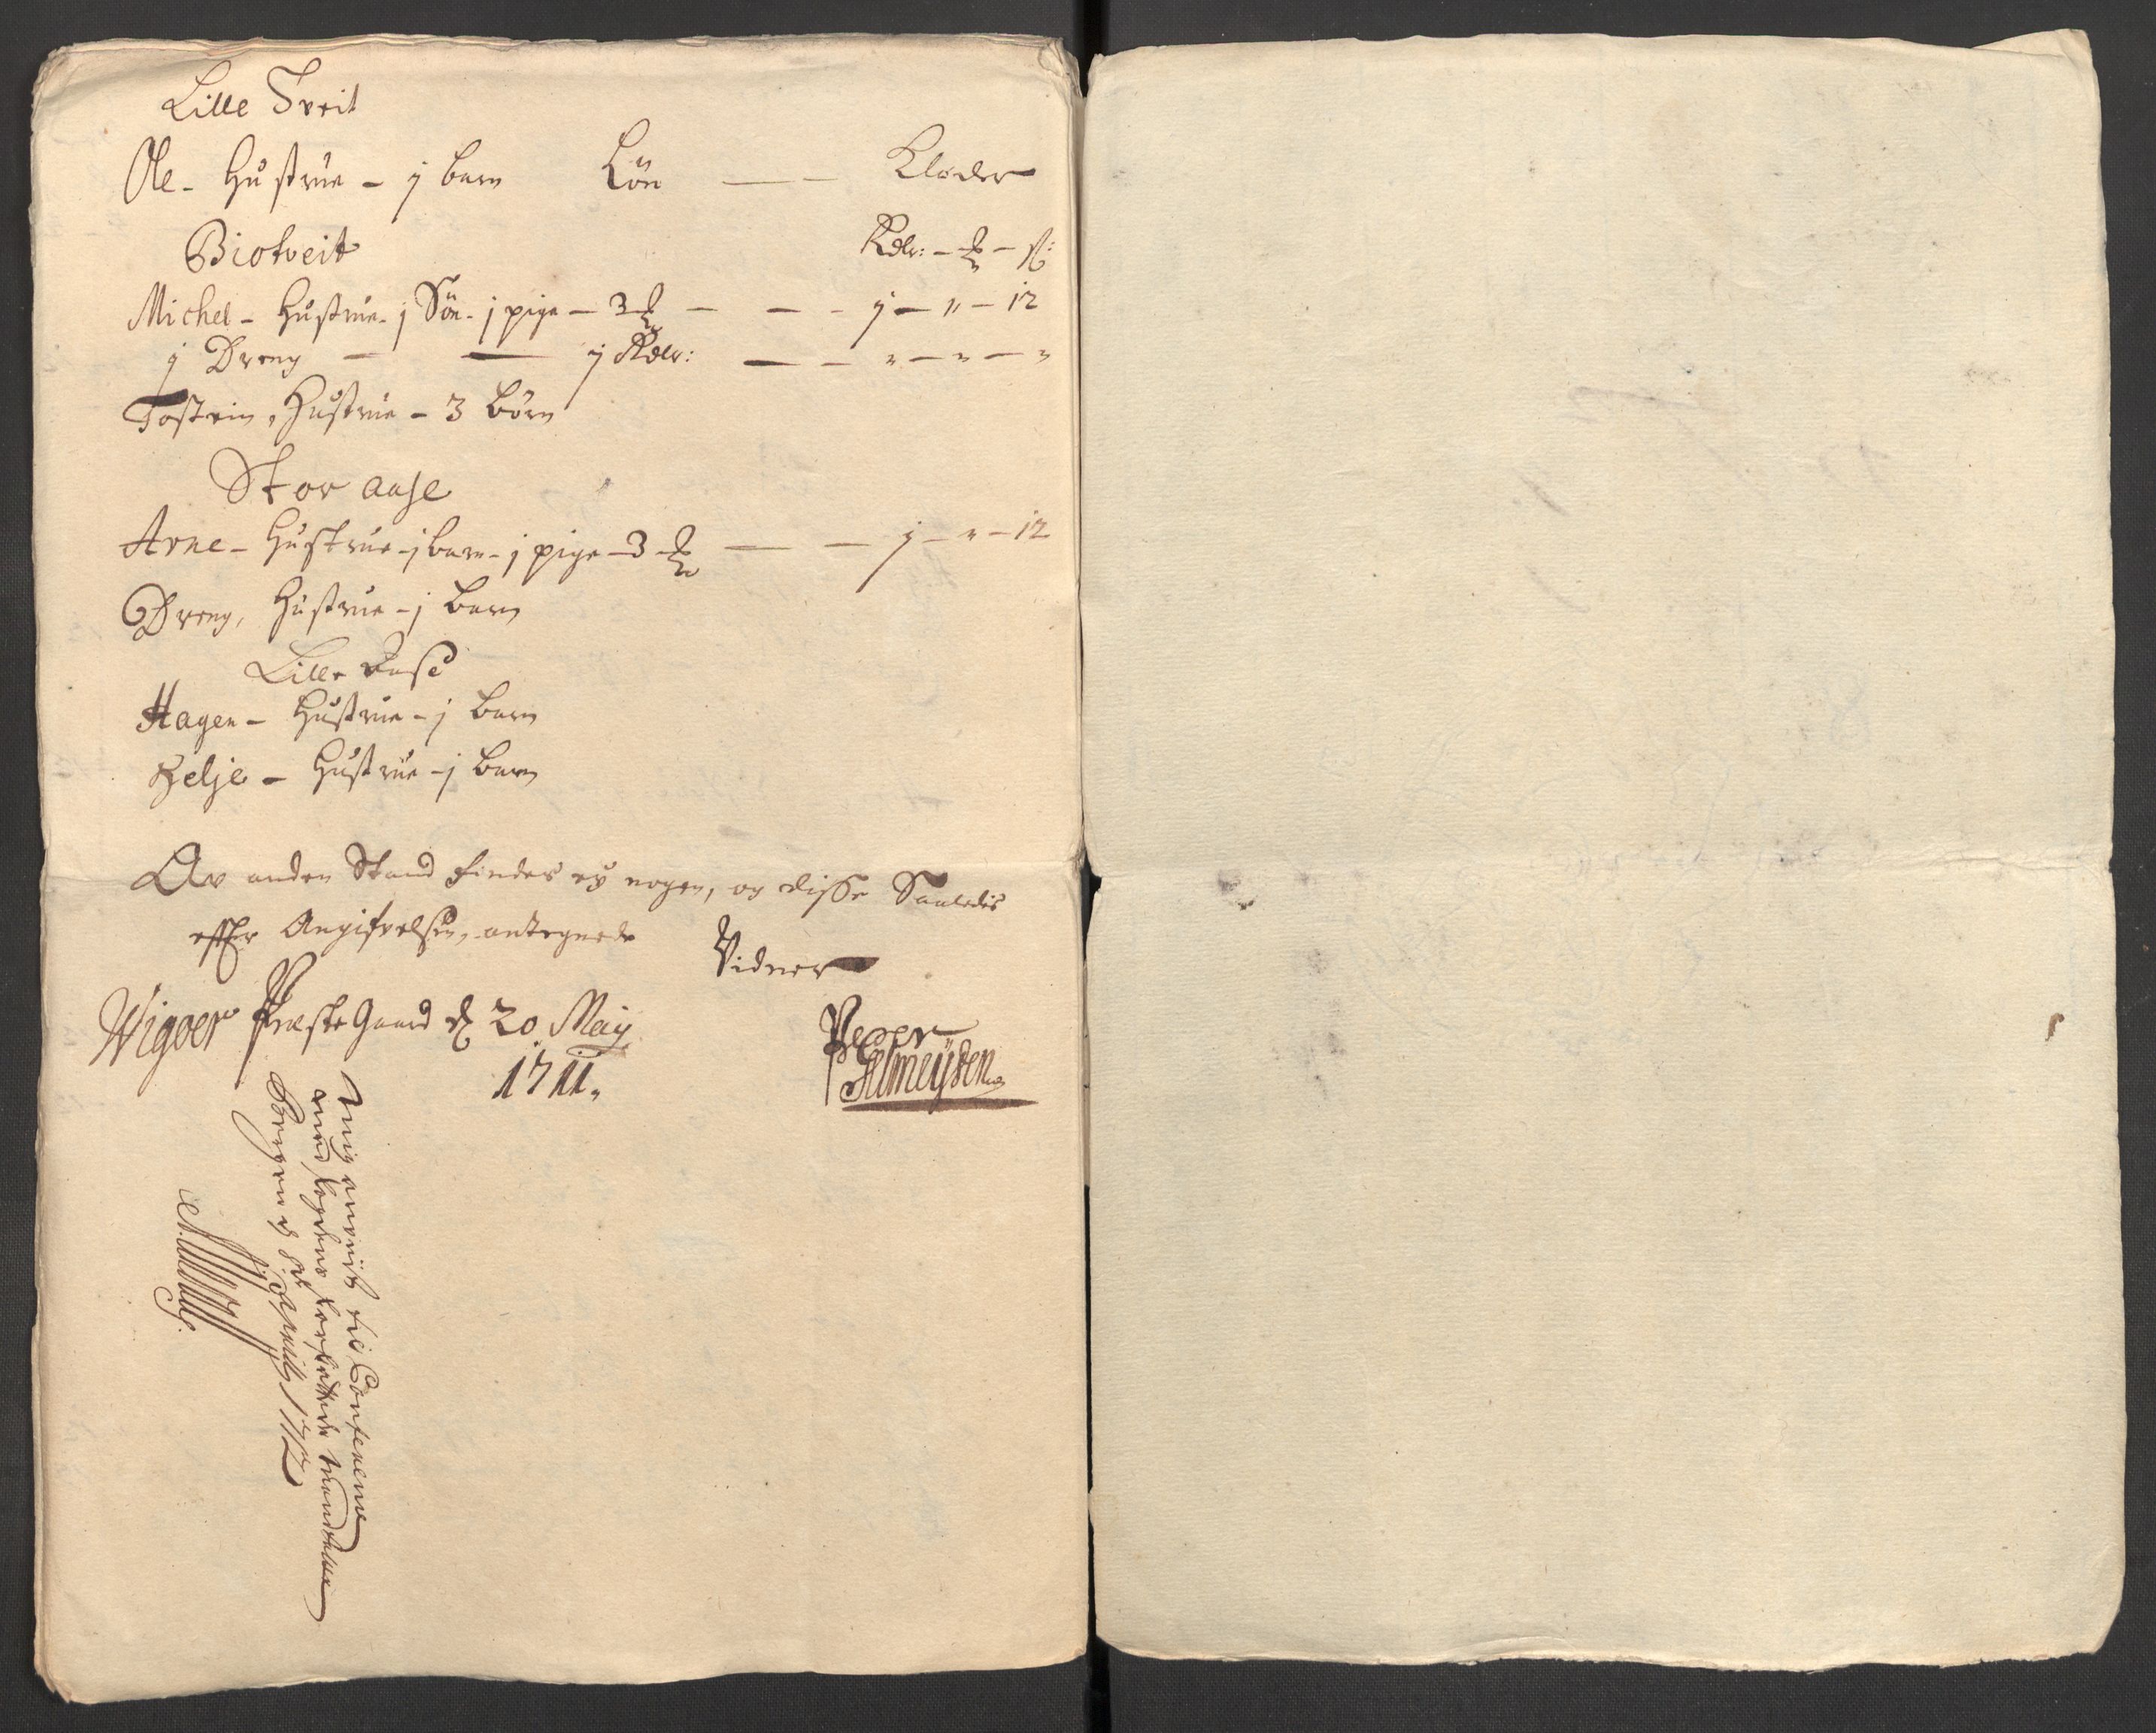 Lille Treit
Ole - Hustrue - j barn Lön — — Klæder
Biotveit Rdlr: - - ß:
Michel - Hustrue - j Sön - j pige - 3 — — - j - " - 12
j Dreng — — j Rdlr: — — " — " — "
Tostein, Hustrue - 3 börn
Stor aase
Arne - Hustrue - j barn - j pige - 3 — — j - " - 12
Dreng, Hustrue - j barn
Lille aase
Hagen - Hustrue - j barn
Helje - Hustrue - j barn
Av anden Stand findes ey nogen, og disse Saaledis
effter Angifvelsen, antegnede
Vidner
Wigøer Præste Gaard d 20 Maij
1711.
Peder
Selmeyden
Mig anviist til Conference
med fogdens forfattede mandtaller
Bergen d April 1712